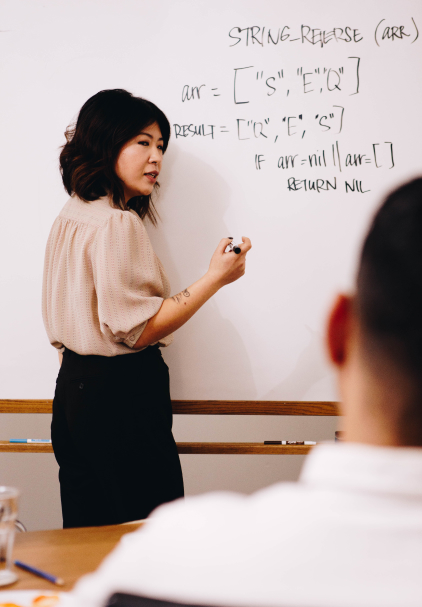 STRING_REVERSE (ARR)
arr = ["S", "E", "Q"]
RESULT = ["Q", "E", "S"]
IF arr = nil || arr = []
RETURN NIL